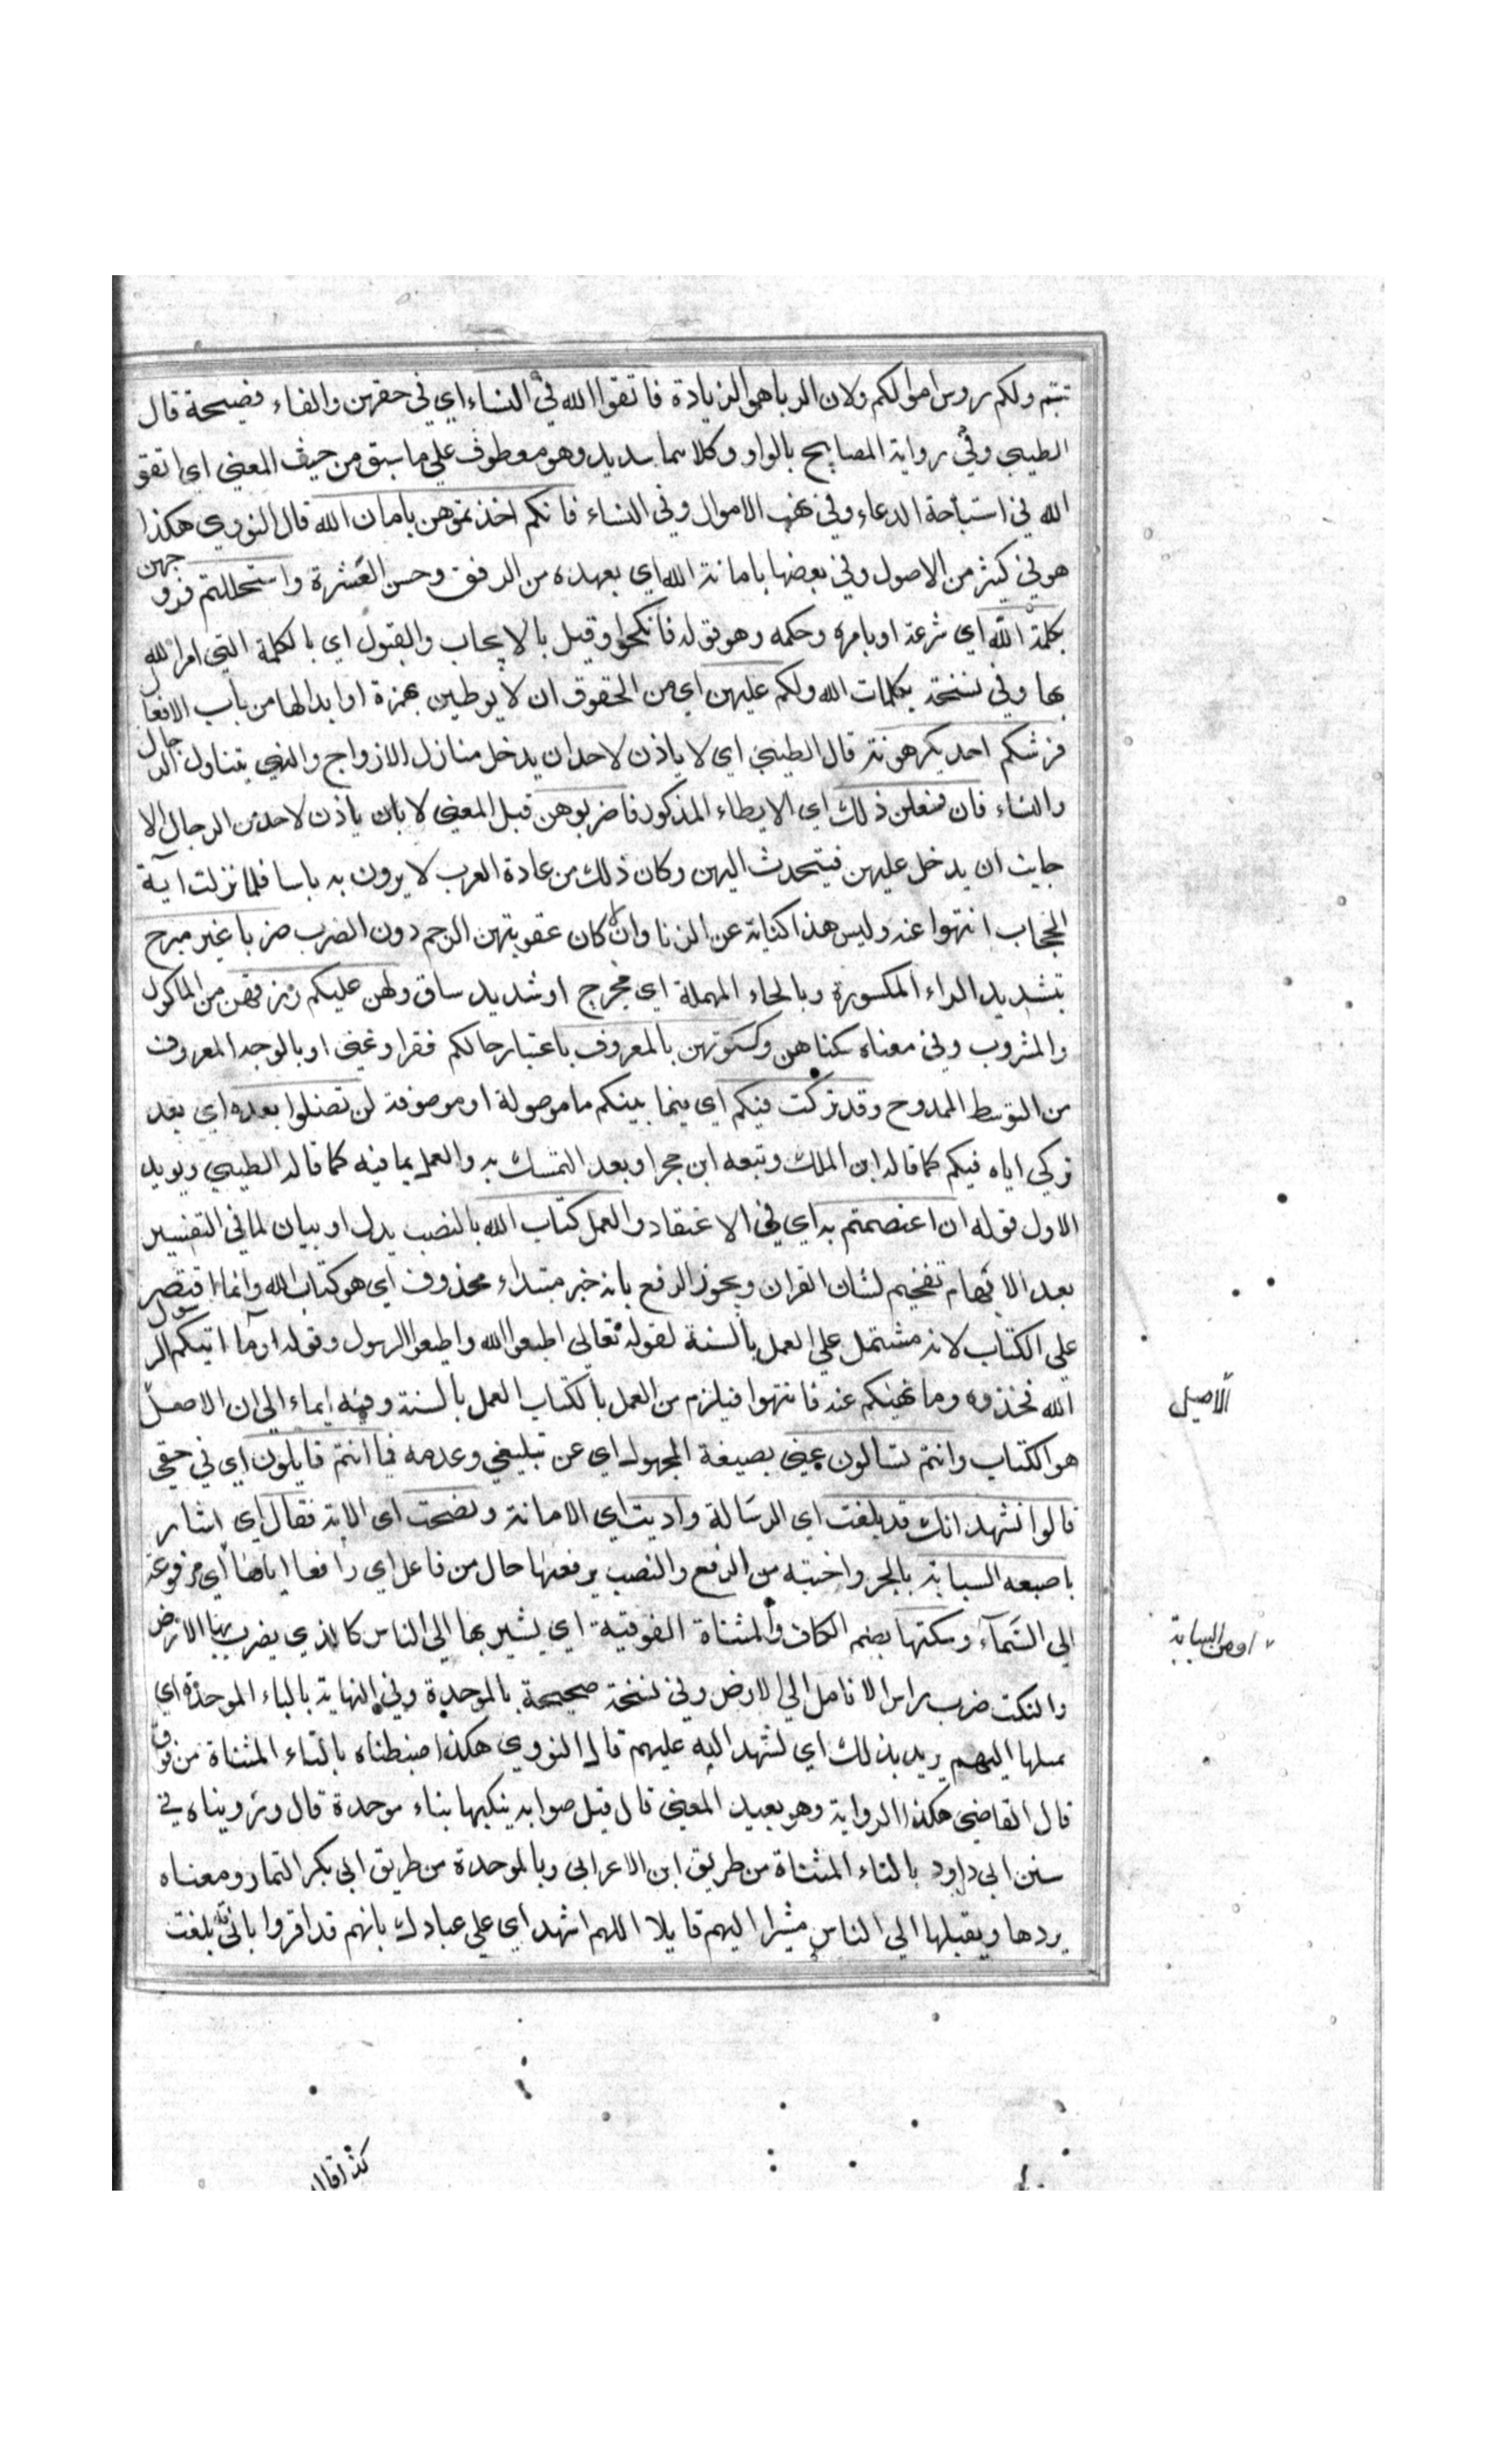 تبتم ولكم روس اموالكم ولان الربا هو الزيادة فاتقوا الله في النساء اي في حقهن والفاء فصيحة قال
الطيبي وفي رواية المصابيح بالواو وكلاهما سديد وهو معطوف علي ما سبق من حيث المعني اي اتقو
الله في استباحة الدماء وفي نهب الاموال وفي النساء فانكم اخذتموهن بامان الله قال النووي هكذا
هو في كثير من الاصول وفي بعضها بامانة الله اي بعهده من الرفق وحسن العشرة واستحللتم فروجهن
بكلمة الله اي شرعه او بامره وحكمه وهو قوله فانكحوا وقيل بالايجاب والقبول اي بالكلمة التي امر الله
بها وفي نسخة بكلمات الله ولكم عليهن اي من الحقوق ان لا يوطين بهمزة او ابدالها من باب الافعال
فرشكم احد يكرهونه قال الطيبي اي لا ياذن لاحد ان يدخل منازل الازواج والنهي يتناول الرجال
والنساء فان فعلن ذلك اي الايطاء المذكور فاضربوهن قيل المعني لا بان ياذن لاحد من الرجال الا
جانب ان يدخل عليهن فيتحدث اليهن وكان ذلك من عادة العرب لا يرون به باسا فلما نزلت اية
الحجاب انتهوا عنه وليس هذا كناية عن الزنا والا كان عقوبتهن الرجم دون الضرب ضربا غير مبرح
بتشديد الراء المكسورة وبالحاء المهملة اي مجرح او شديد ساق ولهن عليكم رزقهن من الماكول
والمشروب وفي معناه سكناهن وكسوتهن بالمعروف باعتبار حالكم فقرا وغني او بالوجه المعروف
من التوسط الممدوح وقد تركت فيكم اي فيما بينكم ما موصولة او موصوفة لن تضلوا بعده اي بعد
تركي اياه فيكم كما قاله ابن الملك وتبعه ابن حجر او بعد التمسك به والعمل بما فيه كما قاله الطيبي ويويد
الاول قوله ان اعتصمتم به اي في الاعتقاد والعمل كتاب الله بالنصب بدل او بيان لما في التفسير
بعد الابهام تفخيم لشان القران ويجوز الرفع بانه خبر مبتداء محذوف اي هو كتاب الله وانما اقتصر
علي الكتاب لانه مشتمل علي العمل بالسنة لقوله تعالي اطيعوا الله واطيعوا الرسول وقوله او ما اتيكم الرسول
الله فخذوه وما نهيكم عنه فانتهوا فيلزم من العمل بالكتاب العمل بالسنة وفيه ايماء الي ان الاصل
الاصيل
هو الكتاب وانتم تسالون عني بصيغة المجهول اي عن تبليغي وعدمه فما انتم قايلون اي في حقي
قالوا نشهد انك قد بلغت اي الرسالة واديت اي الامانة ونصحت اي الامة فقال اي اشار
باصبعه السبابة بالجر واختيه من الرفع والنصب يرفعها حال من فاعل اي رافعا اياها اي مرفوعة
او من السبابة
الي السماء وينكتها بضم الكاف والمثناة الفوقية اي يشير بها الي الناس كالذي يضرب بها الارض
والنكت ضرب براس الانامل الي الارض وفي نسخة صحيحة بالموحدة وفي النهاية بالباء الموحدة اي
يميلها اليهم يريد بذلك اي يشهد الله عليهم قال النووي هكذا ضبطناه بالتاء المثناة من فوق
قال القاضي هكذا الرواية وهو بعيد المعني قال قيل صوابه ينكبها بباء موحدة قال ورويناه في
سنن ابي داود بالتاء المثناة من طريق ابن الاعرابي وبالموحدة من طريق ابي بكر التمار ومعناه
يردها ويقلبها الي الناس مشيرا اليهم قايلا اللهم اشهد اي علي عبادك بانهم قد اقروا باني قد بلغت
كذا قال